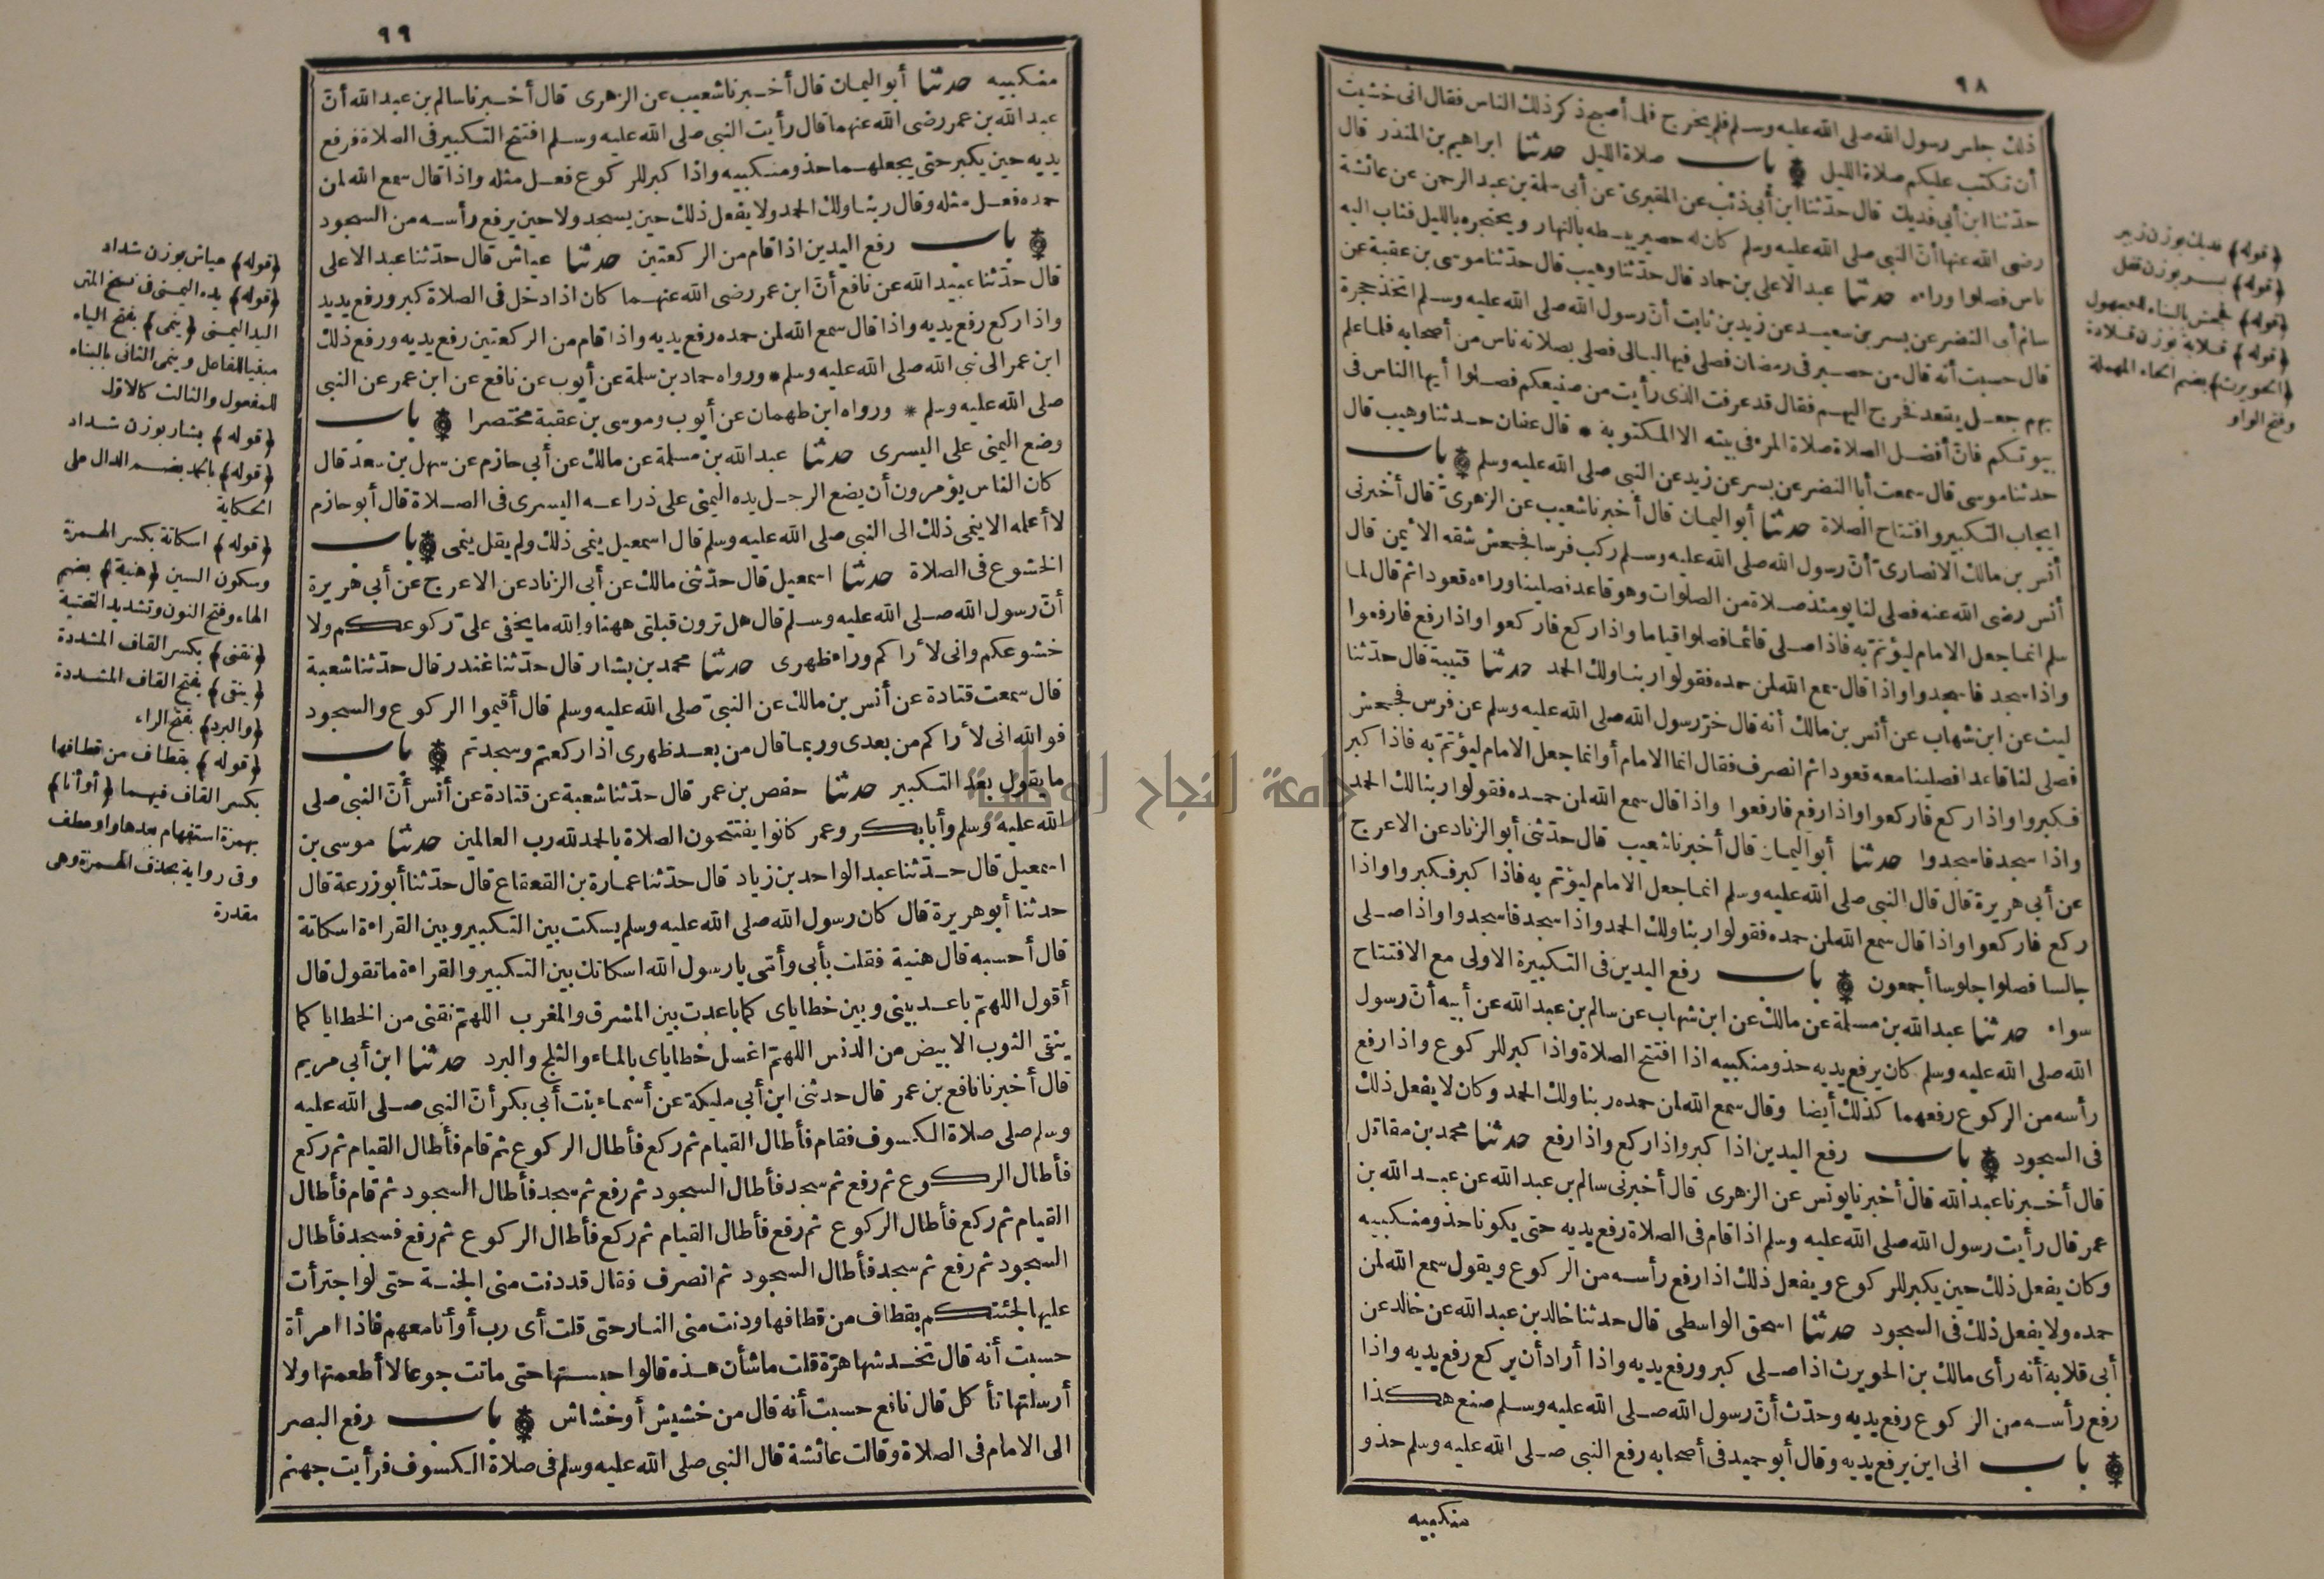 ٩٨
ذلك جلس رسول الله صلى الله عليه وسلم فلم يخرج فلما أصبح ذكر ذلك الناس فقال انى خشيت
أن تكتب عليكم صلاة الليل باب صلاة الليل حدثنا ابراهيم بن المنذر قال
حدّثنا ابن أبى فديك قال حدّثنا ابن أبى ذئب عن المقبرىّ عن أبى سلمة بن عبد الرحمن عن عائشة
رضى الله عنها أنّ النبى صلى الله عليه وسلم كان له حصير يبسطه بالنهار ويحتجره بالليل فثاب اليه
ناس فصلوا وراءه حدثنا عبد الاعلى بن حماد قال حدّثنا وهيب قال حدّثنا موسى بن عقبة عن
سالم أبى النضر عن بسر بن سعيد عن زيد بن ثابت أنّ رسول الله صلى الله عليه وسلم اتخذ حجرة
قال حسبت أنه قال من حصير فى رمضان فصلى فيها ليالى فصلى بصلاته ناس من أصحابه فلما علم
بهم جعل يقعد فخرج اليهم فقال قد عرفت الذى رأيت من صنيعكم فصلوا أيها الناس فى
بيوتكم فانّ أفضل الصلاة صلاة المرء فى بيته الا المكتوبة * قال عفان حدثنا وهيب قال
حدثنا موسى قال سمعت أبا النضر عن بسر عن زيد عن النبى صلى الله عليه وسلم باب
ايجاب التكبير وافتتاح الصلاة حدثنا أبو اليمان قال أخبرنا شعيب عن الزهرىّ قال أخبرنى
أنس بن مالك الانصارىّ أنّ رسول الله صلى الله عليه وسلم ركب فرسا فجحش شقه الأيمن قال
أنس رضى الله عنه فصلى لنا يومئذ صلاة من الصلوات وهو قاعد فصلينا وراءه قعودا ثم قال لما
سلم انما جعل الامام ليؤتمّ به فاذا صلى قائما فصلوا قياما واذا ركع فاركعوا واذا رفع فارفعوا
واذا سجد فاسجدوا واذا قال سمع الله لمن حمده فقولوا ربنا ولك الحمد حدثنا قتيبة قال حدّثنا
ليث عن ابن شهاب عن أنس بن مالك أنه قال خرّ رسول الله صلى الله عليه وسلم عن فرس فجحش
فصلى لنا قاعدا فصلينا معه قعودا ثم انصرف فقال انما الامام أو انما جعل الامام ليؤتمّ به فاذا كبر
فكبروا واذا ركع فاركعوا واذا رفع فارفعوا واذا قال سمع الله لمن حمده فقولوا ربنا لك الحمد
واذا سجد فاسجدوا حدثنا أبو اليمان قال أخبرنا شعيب قال حدّثنى أبو الزناد عن الاعرج
عن أبى هريرة قال قال النبى صلى الله عليه وسلم انما جعل الامام ليؤتم به فاذا كبر فكبروا واذا
ركع فاركعوا واذا قال سمع الله لمن حمده فقولوا ربنا ولك الحمد واذا سجد فاسجدوا واذا صلى
جالسا فصلوا جلوسا أجمعون باب رفع اليدين فى التكبيرة الاولى مع الافتتاح
سواء حدثنا عبد الله بن مسلمة عن مالك عن ابن شهاب عن سالم بن عبد الله عن أبيه أنّ رسول
الله صلى الله عليه وسلم كان يرفع يديه حذو منكبيه اذا افتتح الصلاة واذا كبر للركوع واذا رفع
رأسه من الركوع رفعهما كذلك أيضا وقال سمع الله لمن حمده ربنا ولك الحمد وكان لا يفعل ذلك
فى السجود باب رفع اليدين اذا كبر واذا ركع واذا رفع حدثنا محمد بن مقاتل
قال أخبرنا عبد الله قال أخبرنا يونس عن الزهرى قال أخبرنى سالم بن عبد الله عن عبد الله بن
عمر قال رأيت رسول الله صلى الله عليه وسلم اذا قام فى الصلاة رفع يديه حتى يكونا حذو منكبيه
وكان يفعل ذلك حين يكبر للركوع ويفعل ذلك اذا رفع رأسه من الركوع ويقول سمع الله لمن
حمده ولا يفعل ذلك فى السجود حدثنا اسحق الواسطى قال حدثنا خالد بن عبد الله عن خالد عن
أبى قلابة أنه رأى مالك بن الحويرث اذا صلى كبر ورفع يديه واذا أراد أن يركع رفع يديه واذا
رفع رأسه من الركوع رفع يديه وحدّث أنّ رسول الله صلى الله عليه وسلم صنع هكذا
باب الى اين يرفع يديه وقال أبو حميد فى أصحابه رفع النبى صلى الله عليه وسلم حذو
منكبيه
(قوله) فديك بوزن زبير
(قوله) بسر بوزن قفل
(قوله) فجحش بالبناء للمجهول
(قوله) قلابة بوزن قلادة
(الحويرث) بضم الحاء المهملة
وفتح الواو
٩٩
منكبيه حدثنا أبو اليمان قال أخبرنا شعيب عن الزهرى قال أخبرنا سالم بن عبد الله أنّ
عبد الله بن عمر رضى الله عنهما قال رأيت النبى صلى الله عليه وسلم افتتح التكبير فى الصلاة فرفع
يديه حين يكبر حتى يجعلهما حذو منكبيه واذا كبر للركوع فعل مثله واذا قال سمع الله لمن
حمده فعل مثله وقال ربنا ولك الحمد ولا يفعل ذلك حين يسجد ولا حين يرفع رأسه من السجود
باب رفع اليدين اذا قام من الركعتين حدثنا عياش قال حدّثنا عبد الاعلى
قال حدّثنا عبيد الله عن نافع أنّ ابن عمر رضى الله عنهما كان اذا دخل فى الصلاة كبر ورفع يديه
واذا ركع رفع يديه واذا قال سمع الله لمن حمده رفع يديه واذا قام من الركعتين رفع يديه ورفع ذلك
ابن عمر الى نبى الله صلى الله عليه وسلم * ورواه حماد بن سلمة عن أيوب عن نافع عن ابن عمر عن النبى
صلى الله عليه وسلم * ورواه ابن طهمان عن أيوب وموسى بن عقبة مختصرا باب
وضع اليمنى على اليسرى حدثنا عبد الله بن مسلمة عن مالك عن أبى حازم عن سهل بن سعد قال
كان الناس يؤمرون أن يضع الرجل يده اليمنى على ذراعه اليسرى فى الصلاة قال أبو حازم
لا أعلمه الا ينمى ذلك الى النبى صلى الله عليه وسلم قال اسمعيل ينمى ذلك ولم يقل ينمى باب
الخشوع فى الصلاة حدثنا اسمعيل قال حدّثنى مالك عن أبى الزناد عن الاعرج عن أبى هريرة
أنّ رسول الله صلى الله عليه وسلم قال هل ترون قبلتى ههنا والله ما يخفى علىّ ركوعكم ولا
خشوعكم وانى لأراكم وراء ظهرى حدثنا محمد بن بشار قال حدّثنا غندر قال حدّثنا شعبة
قال سمعت قتادة عن أنس بن مالك عن النبىّ صلى الله عليه وسلم قال أقيموا الركوع والسجود
فوالله انى لأراكم من بعدى وربما قال من بعد ظهرى اذا ركعتم وسجدتم باب
ما يقول بعد التكبير حدثنا حفص بن عمر قال حدّثنا شعبة عن قتادة عن أنس أنّ النبى صلى
الله عليه وسلم وأبا بكر وعمر كانوا يفتتحون الصلاة بالحمد لله رب العالمين حدثنا موسى بن
اسمعيل قال حدّثنا عبد الواحد بن زياد قال حدّثنا عمارة بن القعقاع قال حدّثنا أبو زرعة قال
حدثنا أبو هريرة قال كان رسول الله صلى الله عليه وسلم يسكت بين التكبير وبين القراءة اسكاتة
قال أحسبه قال هنية فقلت بأبى وأمى يا رسول الله اسكاتك بين التكبير والقراءة ما تقول قال
أقول اللهمّ باعد بينى وبين خطاياى كما باعدت بين المشرق والمغرب اللهمّ نقنى من الخطايا كما
ينقى الثوب الابيض من الدنس اللهمّ اغسل خطاياى بالماء والثلج والبرد حدثنا ابن أبى مريم
قال أخبرنا نافع بن عمر قال حدثنى ابن أبى مليكة عن أسماء بنت أبى بكر أنّ النبى صلى الله عليه
وسلم صلى صلاة الكسوف فقام فأطال القيام ثم ركع فأطال الركوع ثم قام فأطال القيام ثم ركع
فأطال الركوع ثم رفع ثم سجد فأطال السجود ثم رفع ثم سجد فأطال السجود ثم قام فأطال
القيام ثم ركع فأطال الركوع ثم رفع فأطال القيام ثم ركع فأطال الركوع ثم رفع فسجد فأطال
السجود ثم رفع ثم سجد فأطال السجود ثم انصرف فقال قد دنت منى الجنة حتى لو اجترأت
عليها لجئتكم بقطاف من قطافها ودنت منى النار حتى قلت أى رب أو أنا معهم فاذا امرأة
حسبت أنه قال تخدشها هرّة قلت ما شأن هذه قالوا حبستها حتى ماتت جوعا لا أطعمتها ولا
أرسلتها تأكل قال نافع حسبت أنه قال من خشيش أو خشاش باب رفع البصر
الى الامام فى الصلاة وقالت عائشة قال النبى صلى الله عليه وسلم فى صلاة الكسوف فرأيت جهنم
(قوله) عياش بوزن شداد
(قوله) يده اليمنى فى نسخ المتن
اليد اليمنى (ينمى) بفتح الياء
مبنيا للفاعل وينمى الثانى بالبناء
للمفعول والثالث كالاول
(قوله) بشار بوزن شداد
(قوله) بالحمد بضم الدال على
الحكاية
(قوله) اسكاتة بكسر الهمزة
وسكون السين (هنية) بضم
الهاء وفتح النون وتشديد التحتية
(نقنى) بكسر القاف المشددة
(ينقى) بفتح القاف المشددة
(والبرد) بفتح الراء
(قوله) بقطاف من قطافها
بكسر القاف فيهما (أو أنا)
بهمزة استفهام بعدها واو عطف
وفى رواية بحذف الهمزة وهى
مقدرة
جامعة النجاح الوطنية